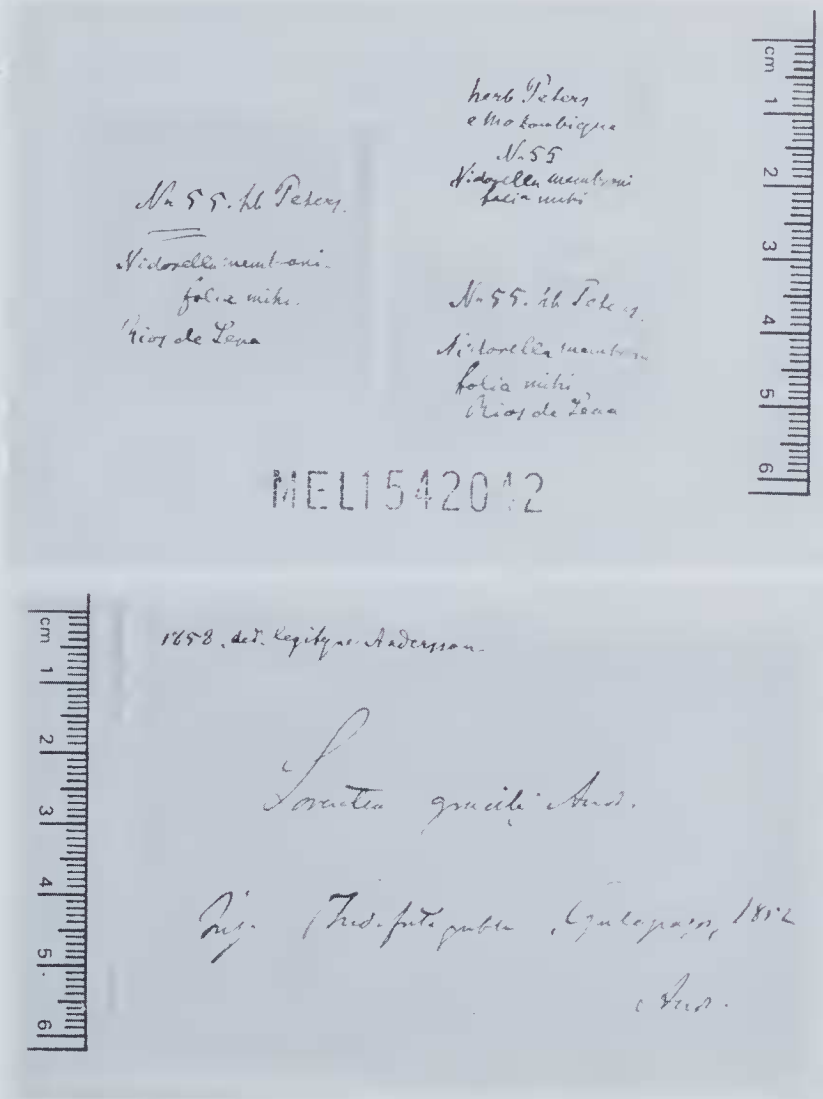 No 55. hb Peters.
Nidorella membrani-
folia mihi.
Rios de Lena
herb Peters
e Mozambique
No 55
Nidorella membrani
folia mihi
No 55. hb Peters.
Nidorella membrani
folia mihi
Rios de Lena
MEL1542012
cm 1 2 3 4 5 6
cm 1 2 3 4 5 6
1858. det. legitque Andersson.
gracilis And.
Ins. Indefatigable, Galapagos, 1852
And.